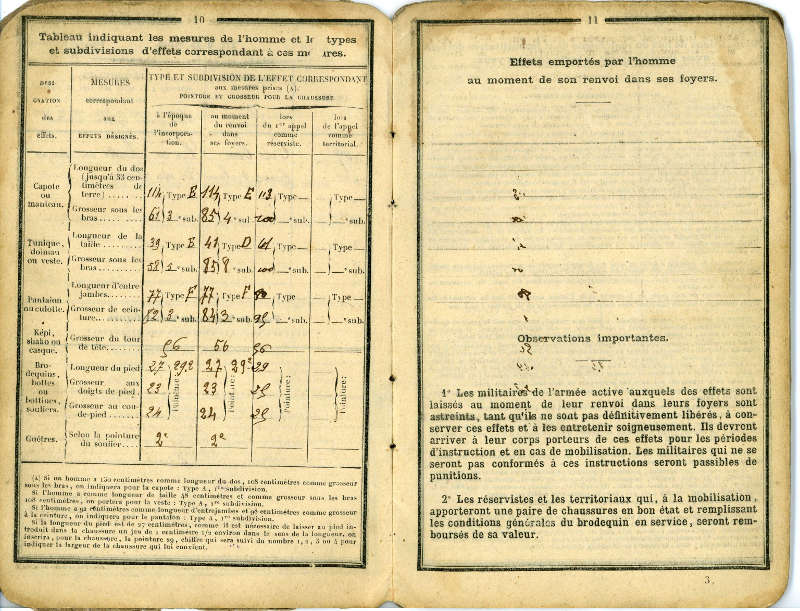 10
Tableau indiquant les mesures de l'homme et les types
et subdivisions d'effets correspondant à ces mesures.
DÉSI
GNATION
des
effets.
MESURES
correspondant
aux
EFFETS DÉSIGNÉS.
TYPE ET SUBDIVISION DE L'EFFET CORRESPONDANT
aux mesures prises (A).
POINTURE ET GROSSEUR POUR LA CHAUSSURE
à l'époque
de
l'incorpora-
tion.
au moment
du renvoi
dans
ses foyers.
lors
du 1er appel
comme
réserviste.
lors
de l'appel
comme
territorial.
Capote
ou
manteau.
Longueur du dos
(jusqu'à 33 cen-
timètres de
terre)
114 Type B 114 Type E 113 Type — Type —
Grosseur sous les
bras 3e sub. 85 4e sub. 100 —e sub. —e sub.
Tunique,
dolman
ou veste.
Longueur de la
taille 39 Type E 41 Type D Type — Type —
Grosseur sous les
bras 5e sub. 85 8e sub. 100 —e sub. —e sub.
Pantalon
ou culotte.
Longueur d'entre-
jambes 77 Type F 77 Type F Type Type —
Grosseur de cein-
ture 3e sub. 84 3e sub. 95 —e sub. —e sub.
Képi,
shako ou
casque.
Grosseur du tour
de tête 56 56 56
Bro-
dequins,
bottes
ou
bottines,
souliers.
Longueur du pied 27 29.2 27 29 2 29
Grosseur aux
doigts de pied 23 23 25
Grosseur au cou-
de-pied 24 24 25
Pointure: Pointure: Pointure: Pointure:
Guêtres.
Selon la pointure
du soulier 2e 2e
(A) Si un homme a 130 centimètres comme longueur du dos, 108 centimètres comme grosseur
sous les bras, on indiquera pour la capote : Type A, 1re subdivision.
Si l'homme a comme longueur de taille 48 centimètres et comme grosseur sous les bras
108 centimètres, on portera pour la veste : Type A, 1re subdivision.
Si l'homme a 92 centimètres comme longueur d'entrejambes et 98 centimètres comme grosseur
à la ceinture, on indiquera pour le pantalon : Type A, 1re subdivision.
Si la longueur du pied est de 27 centimètres, comme il est nécessaire de laisser au pied in-
troduit dans la chaussure un jeu de 1 centimètre 1/2 environ dans le sens de la longueur, on
inscrira, pour la chaussure, la pointure 29, chiffre qui sera suivi du nombre 1, 2, 3 ou 4 pour
indiquer la largeur de la chaussure qui lui convient.
11
Effets emportés par l'homme
au moment de son renvoi dans ses foyers.
Observations importantes.
1° Les militaires de l'armée active auxquels des effets sont
laissés au moment de leur renvoi dans leurs foyers sont
astreints, tant qu'ils ne sont pas définitivement libérés, à con-
server ces effets et à les entretenir soigneusement. Ils devront
arriver à leur corps porteurs de ces effets pour les périodes
d'instruction et en cas de mobilisation. Les militaires qui ne se
seront pas conformés à ces instructions seront passibles de
punitions.
2° Les réservistes et les territoriaux qui, à la mobilisation,
apporteront une paire de chaussures en bon état et remplissant
les conditions générales du brodequin en service, seront rem-
boursés de sa valeur.
3